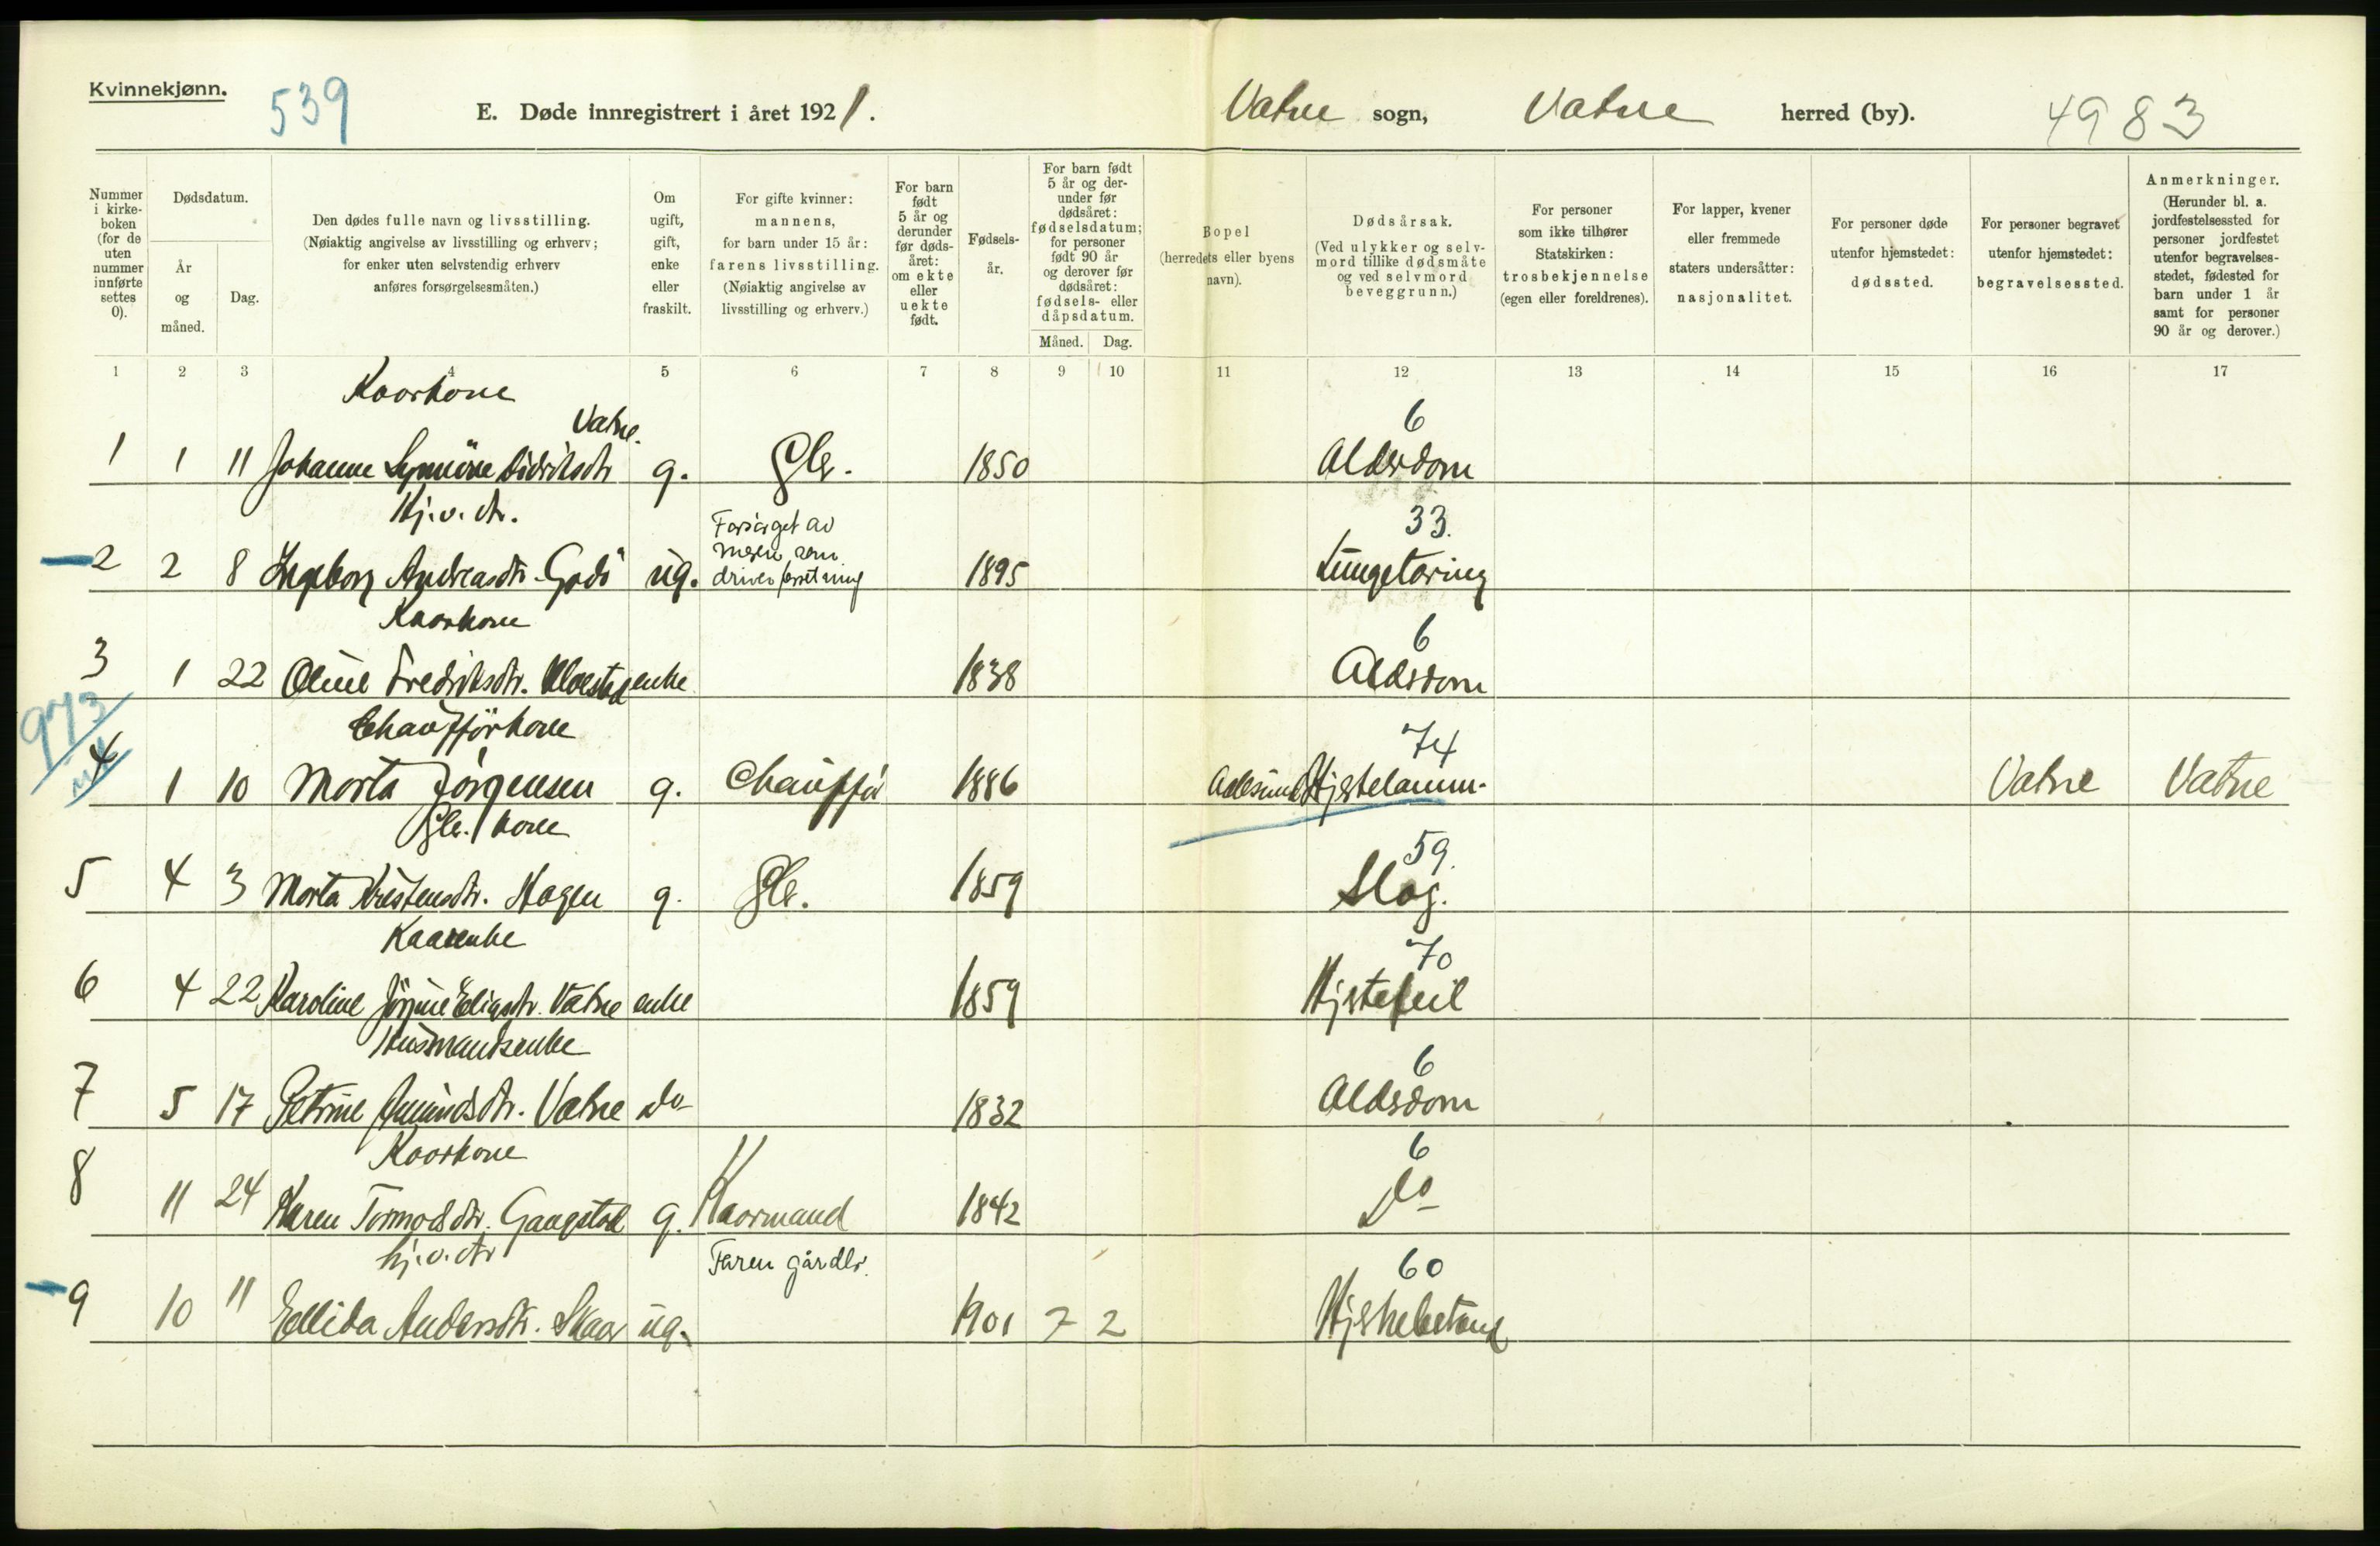 Kvinnekjønn.
539
E. Døde innregistrert i året 1921.
Vatne sogn, Vatne herred (by).
4983
Nummer i kirke-boken (for de uten nummer innførte settes 0).
Dødsdatum.
År og måned.
Dag.
Den dødes fulle navn og livsstilling.
(Nøiaktig angivelse av livsstilling og erhverv;
for enker uten selvstendig erhverv
anføres forsørgelsesmåten.)
Om ugift, gift, enke eller fraskilt.
For gifte kvinner:
mannens,
for barn under 15 år:
farens livsstilling.
(Nøiaktig angivelse av
livsstilling og erhverv.)
For barn født 5 år og derunder før døds-året: om ekte eller uekte født.
Fødsels-år.
For barn født 5 år og der-under før dødsåret: fødselsdatum; for personer født 90 år og derover før dødsåret: fødsels- eller dåpsdatum.
Måned. Dag.
Bopel
(herredets eller byens
navn).
Dødsårsak.
(Ved ulykker og selv-
mord tillike dødsmåte
og ved selvmord
beveggrunn.)
For personer
som ikke tilhører
Statskirken:
trosbekjennelse
(egen eller foreldrenes).
For lapper, kvener
eller fremmede
staters undersåtter:
nasjonalitet.
For personer døde
utenfor hjemstedet:
dødssted.
For personer begravet
utenfor hjemstedet:
begravelsessted.
Anmerkninger.
(Herunder bl. a.
jordfestelsessted for
personer jordfestet
utenfor begravelses-
stedet, fødested for
barn under 1 år
samt for personer
90 år og derover.)
1 2 3 4 5 6 7 8 9 10 11 12 13 14 15 16 17
Kaarkone
Vatne. 6
1 1 11 Johanne Synnöve Didriksdtr g. Gbr. 1850 Alderdom
Hj.v. dtr. Forsörget av 33.
moren som
2 2 8 Ingeborg Andreasdtr. Godö ug. driver forretning 1895 Lungetæring
Kaarkone 6
3 1 22 Oline Fredriksdtr. enke 1838 Aldsdom
973
Chaufförkone 74
4 1 10 Marta Jörgensen g. Chaufför 1886 Aalesund Hjertelamm. Vatne Vatne
Gbr. kone 59.
5 4 3 Marta Kristensdtr. Hagen g. Gbr. 1859 Slag.
Kaarenke 70
6 4 22 Karoline Jörgine Eliasdtr. Vatne enke 1859 Hjertefeil
Husmandsenke 6
7 5 17 Petrine Amundsdtr. Vatne do 1832 Aldsdom
Kaarkone 6
8 11 24 Karen Tormodsdtr. Gangstad g. Kaarmand 1842 Do
hj.v. dtr Faren gårdbr. 60
9 10 11 Ellida Andersdtr. Skaar ug. 1901 7 2